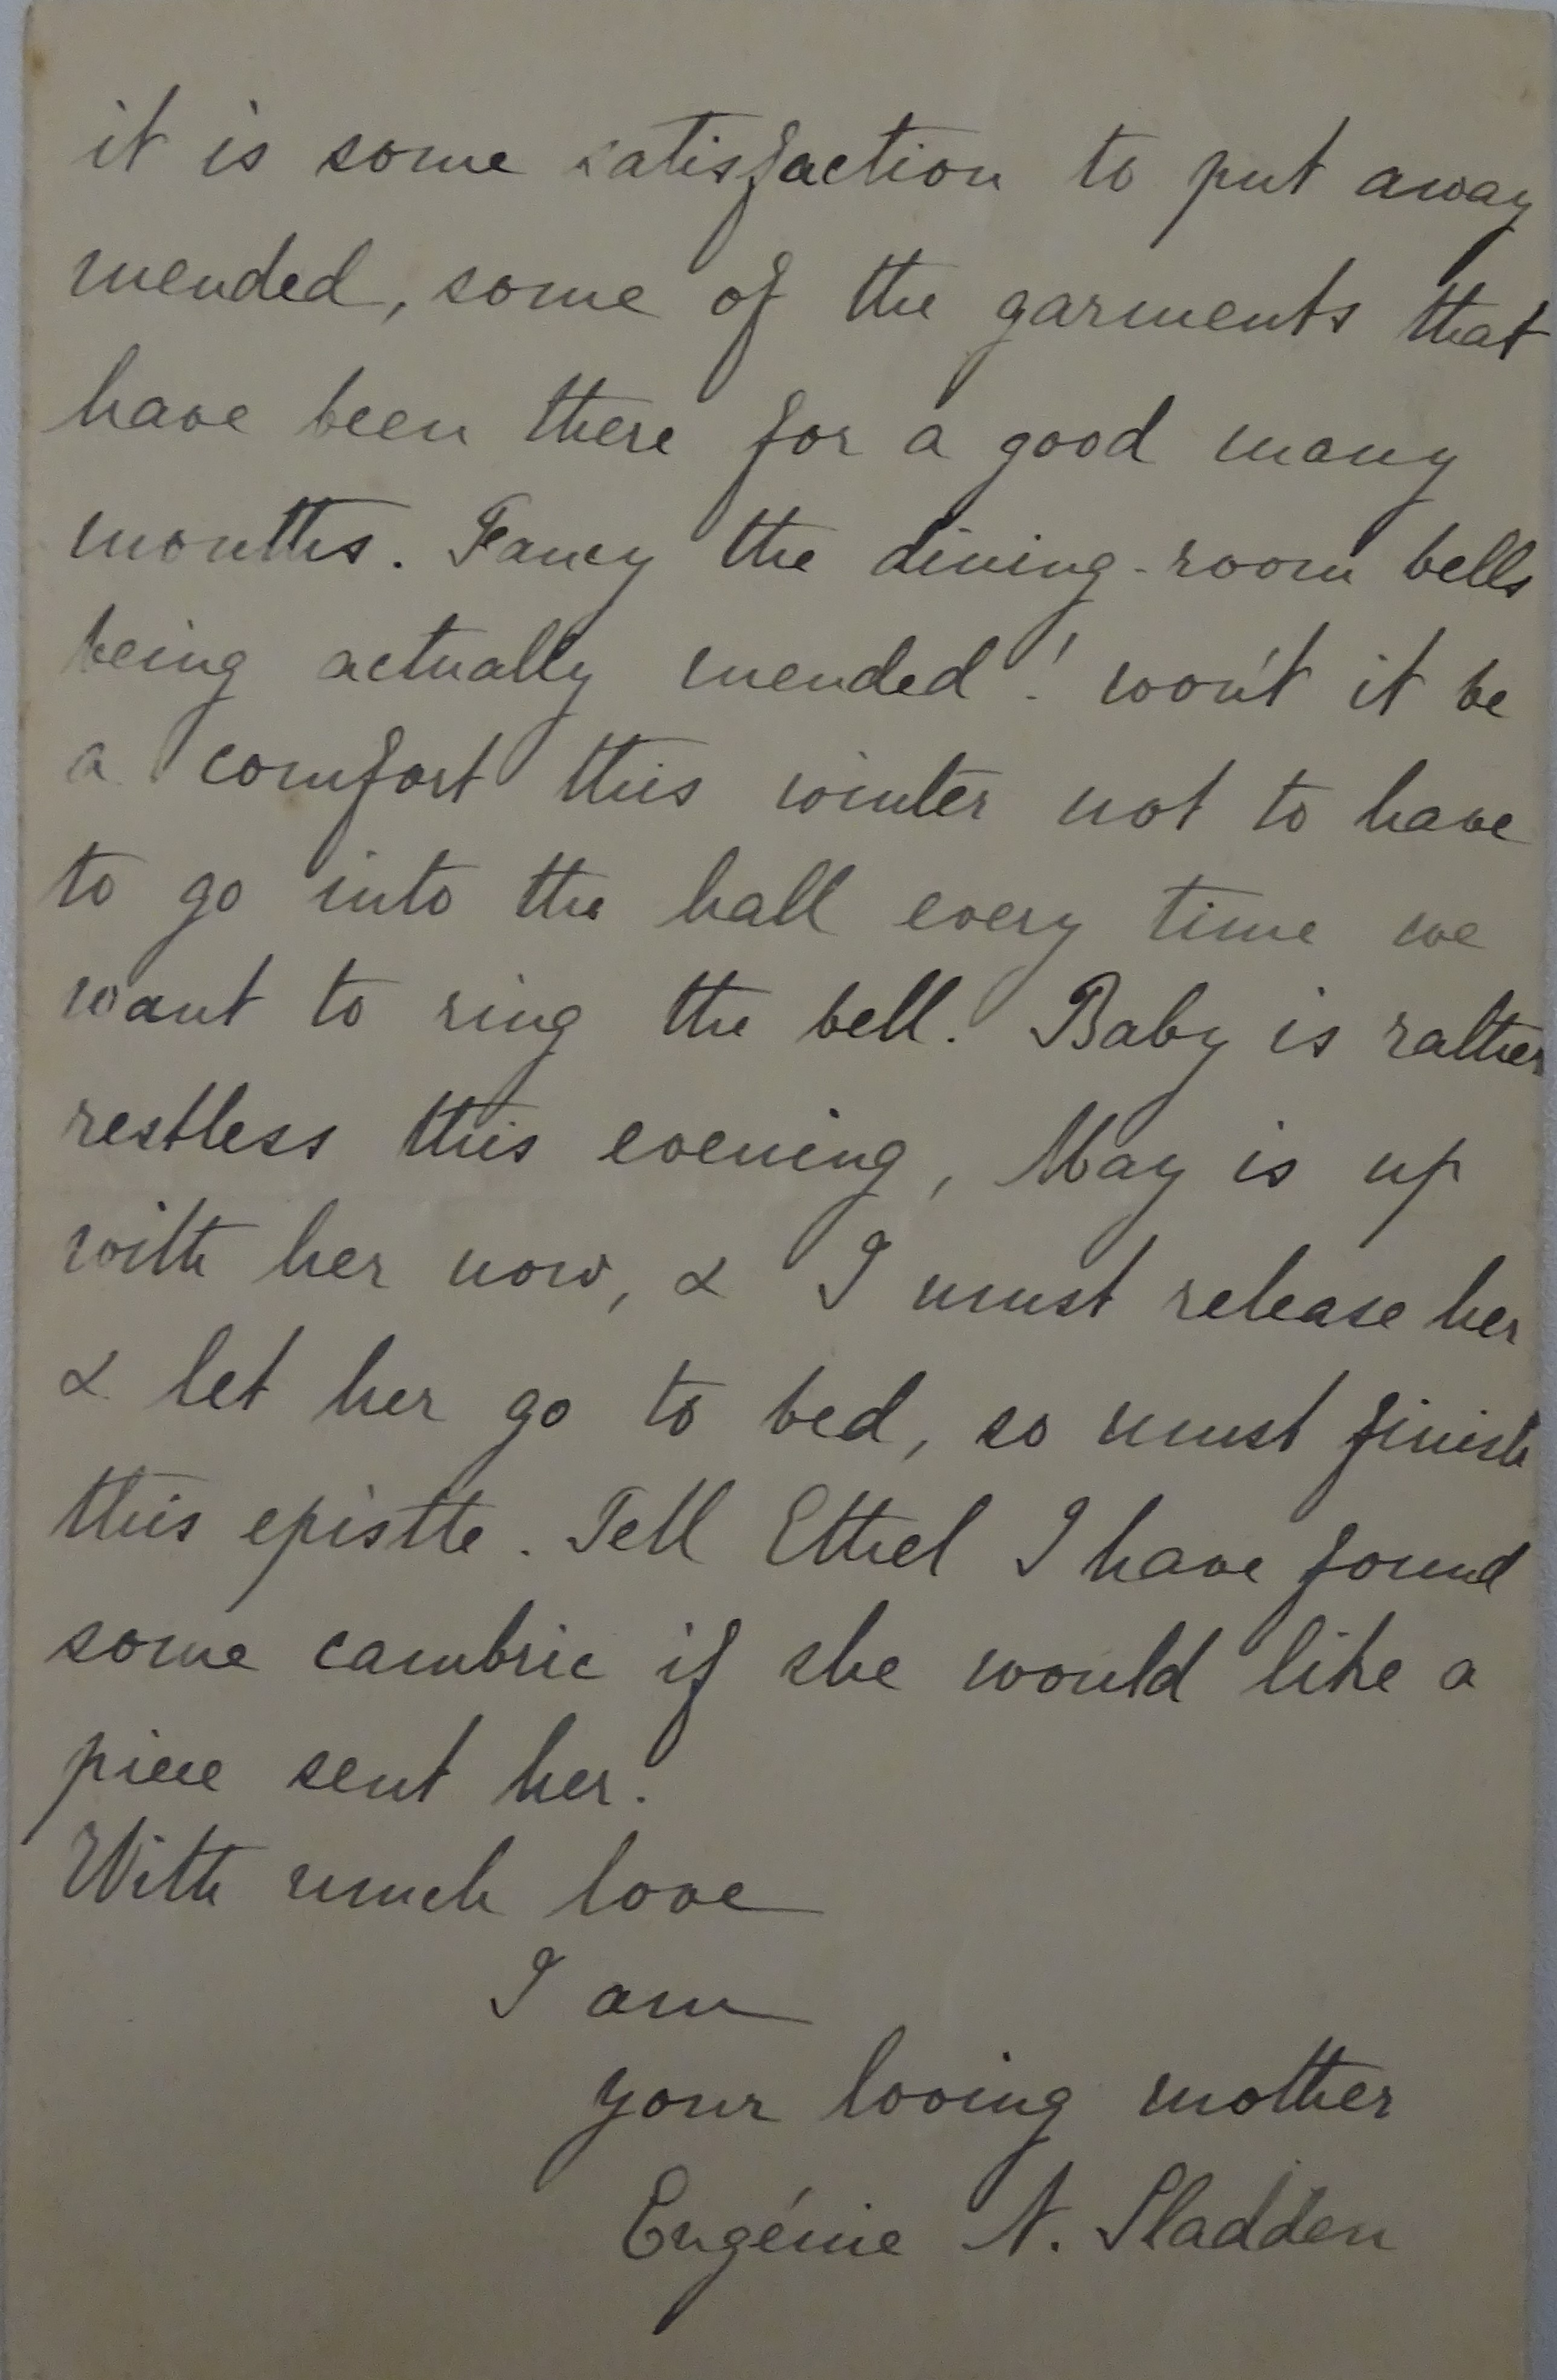 it is some satisfaction to put away
mended, some of the garments that
have been there for a good many
months. Fancy the dining-room bells
being actually mended! won't it be
a comfort this winter not to have
to go into the hall every time we
want to ring the bell. Baby is rather
restless this evening, May is up
with her now, & I must release her
& let her go to bed, so must finish
this epistle. Tell Ethel I have found
some cambric if she would like a
piece sent her.
With much love
I am
your loving mother
Eugénie N. Sladden